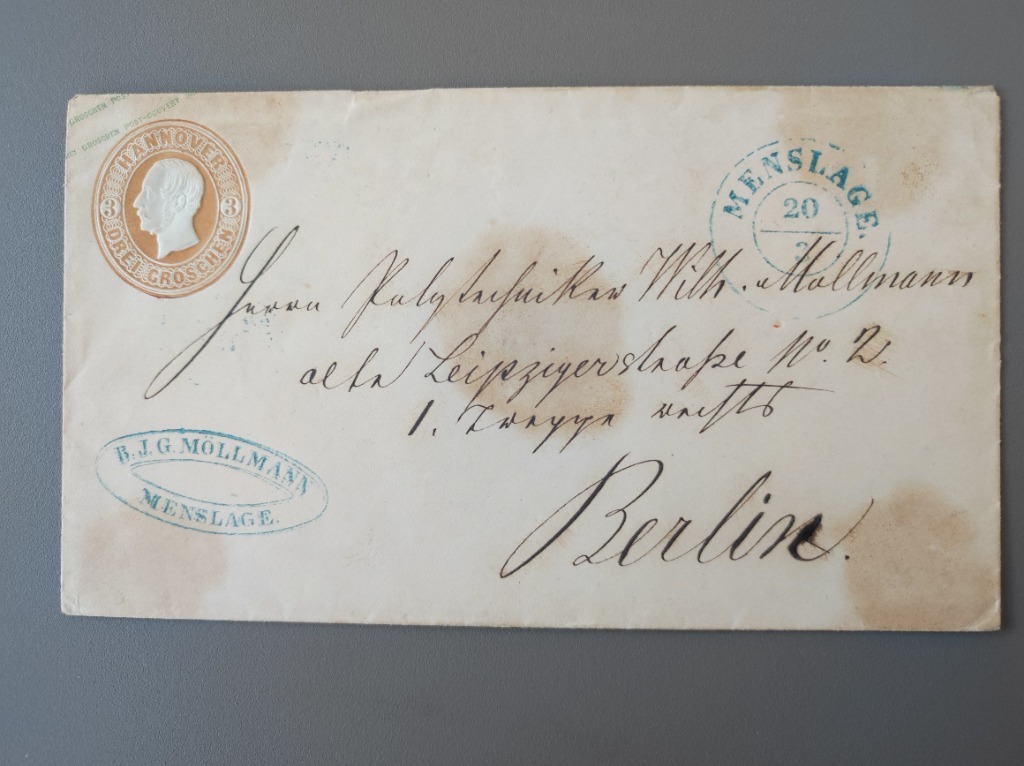 GROSCHEN POST
GROSCHEN POST-COUVERT
HANNOVER
3 3
DREI GROSCHEN
MENSLAGE.
20
Herrn Polytechniker Wilh. Möllmann
alte Leipzigerstraße No. 2.
1. Treppe rechts
Berlin.
B. J. G. MÖLLMANN
MENSLAGE.